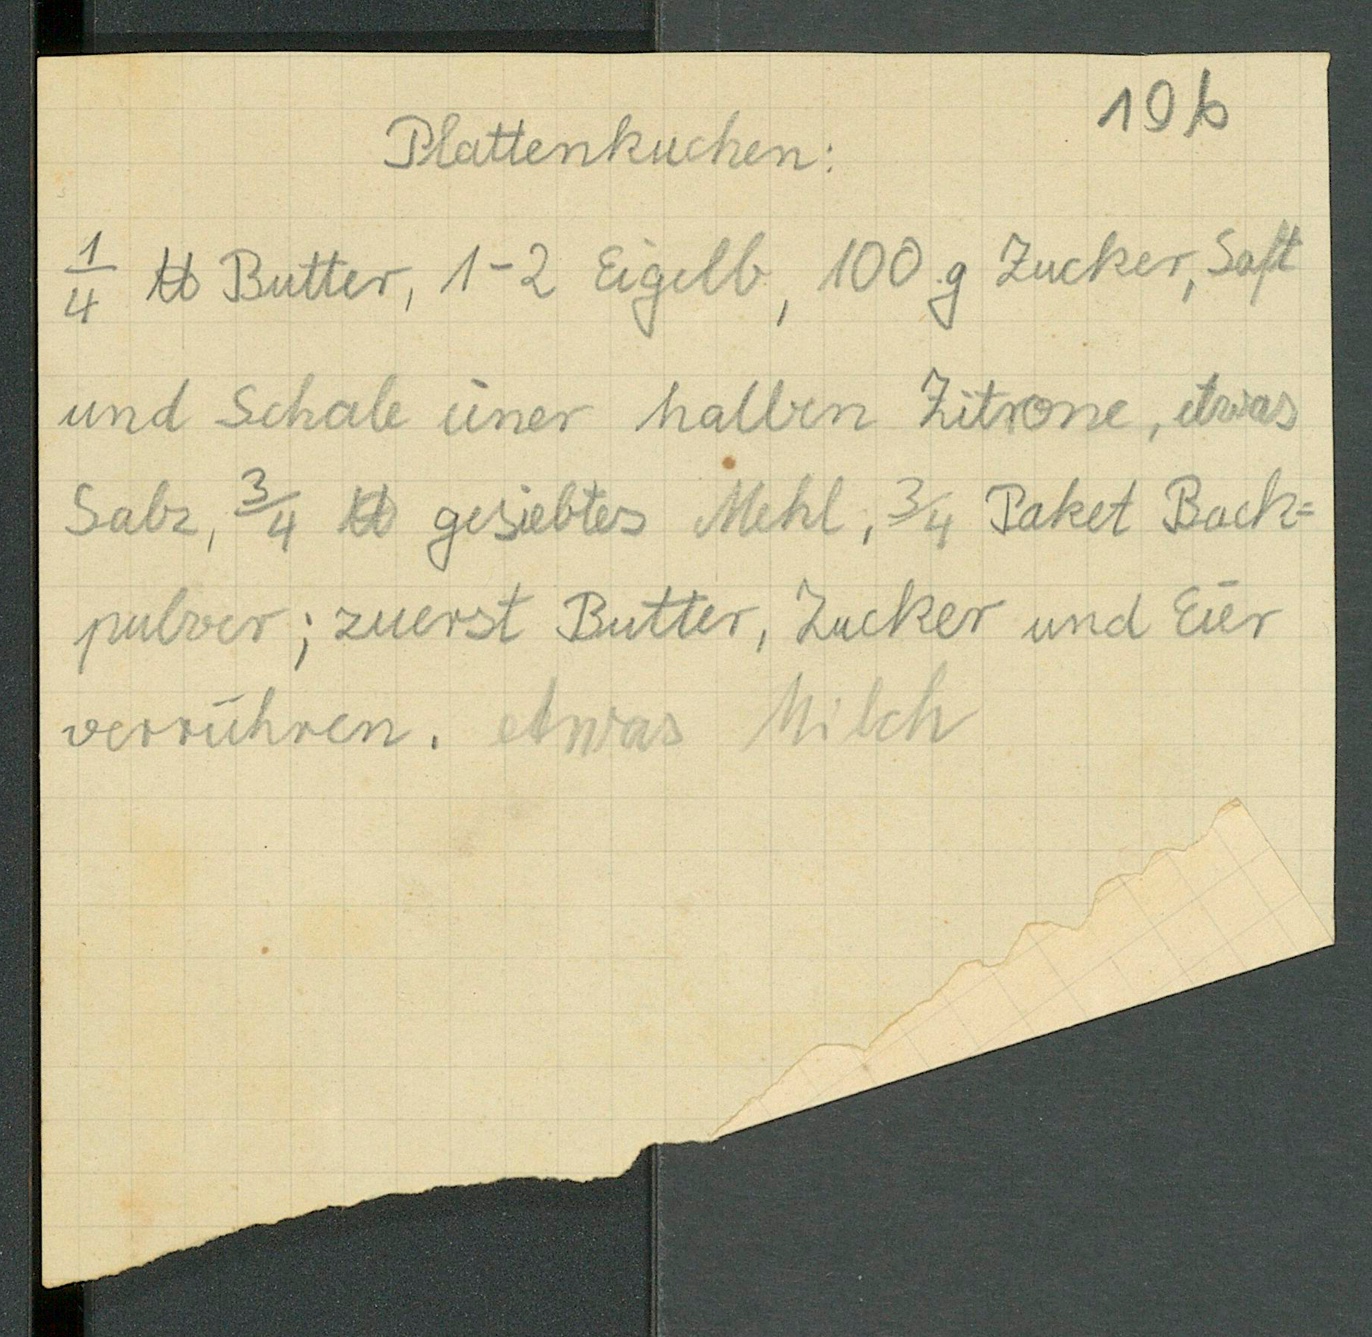 19b
Plattenkuchen:
1/4 ℔ Butter, 1-2 Eigelb, 100 g Zucker, Saft
und Schale einer halben Zitrone, etwas
Salz, 3/4 ℔ gesiebtes Mehl, 3/4 Paket Back=
pulver; zuerst Butter, Zucker und Eier
verrühren. etwas Milch